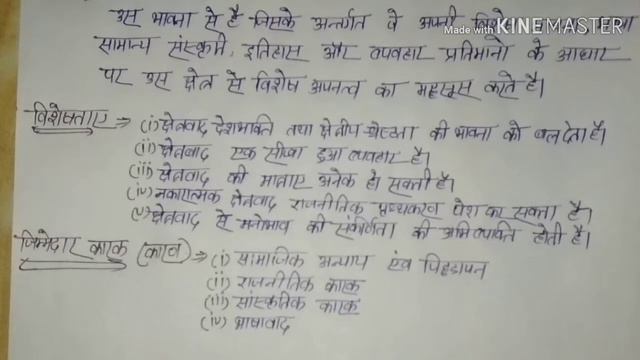 उस भावना से है जिसके अन्तर्गत वे अपनी विशेष
Made with KINEMASTER
सामान्य संस्कृति, इतिहास और व्यवहार प्रतिमानो के आधार
पर उस क्षेत्र से विशेष अपनत्व का महसूस करते है।
विशेषताए ⇒ (i) क्षेत्रवाद देशभक्ति तथा क्षेत्रीय श्रेष्ठता की भावना को बल देता है।
(ii) क्षेत्रवाद एक सीखा हुआ व्यवहार है।
(iii) क्षेत्रवाद की मात्राए अनेक हो सकती है।
(iv) नकारात्मक क्षेत्रवाद राजनीतिक पृथ्थकरण पेश कर सकता है।
(v) क्षेत्रवाद से मनोभाव की संकीर्णता की अभिव्यक्ति होती है।
जिम्मेदार कारक (कारण) ⇒ (i) सामाजिक अन्याय एंव पिछडापन
(ii) राजनीतिक कारक
(iii) सांस्कृतिक कारक
(iv) भाषावाद